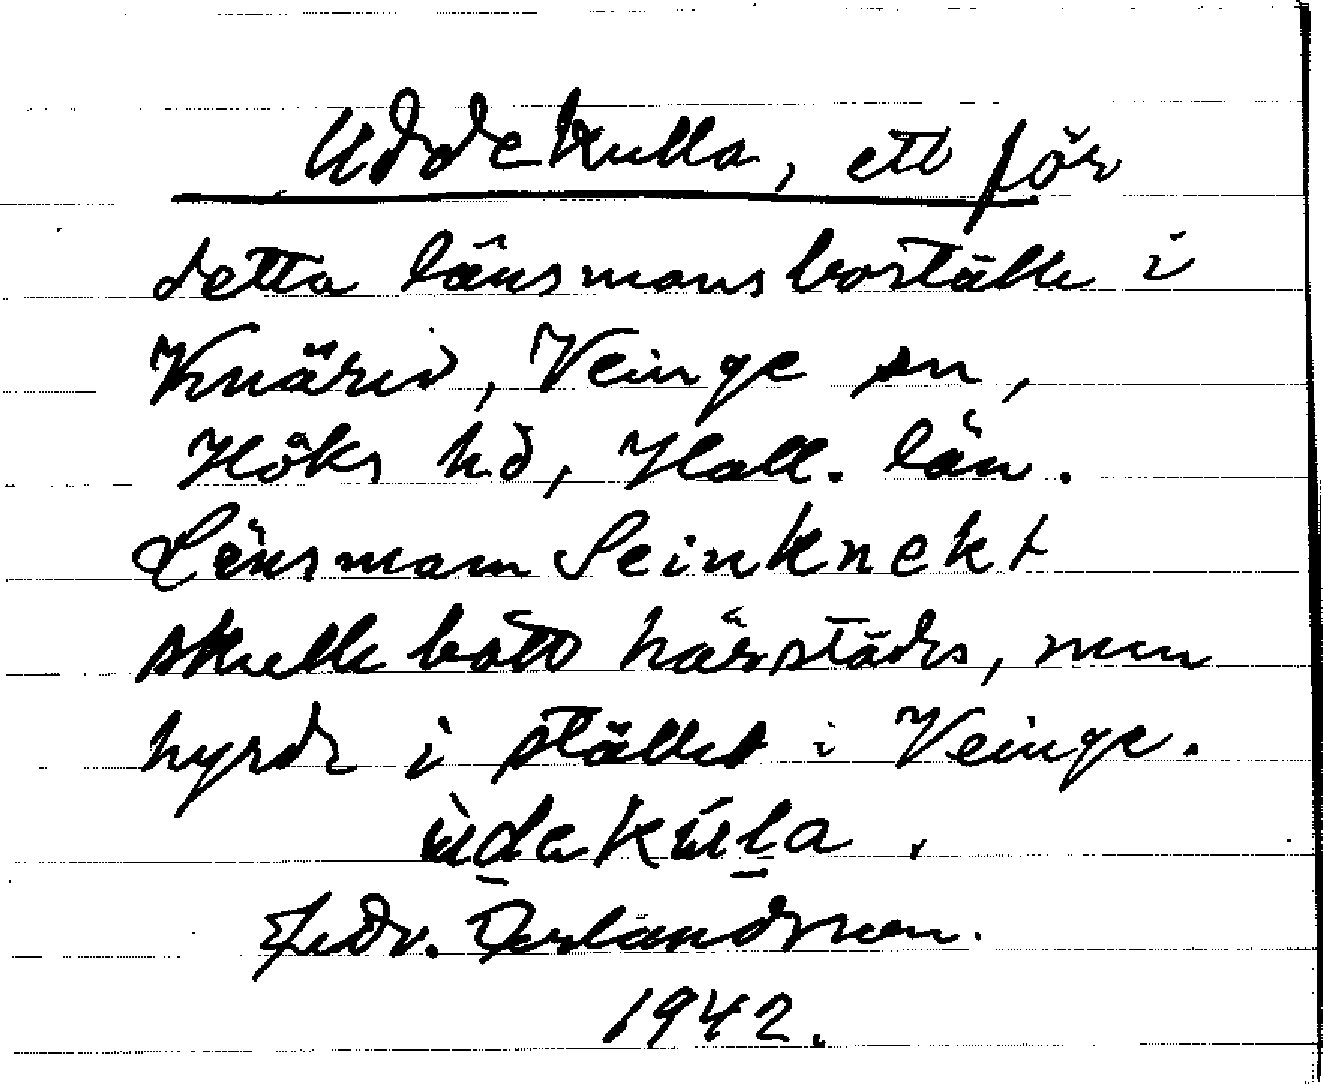 Uddekulla, ett för
detta länsmansboställe i
Knäred, Veinge sn,
Höks hd, Hall. län.
Länsman Seinknekt
skulle bott härstädes, men
hyrde i stället i Veinge.
ùdekúla.
1942.